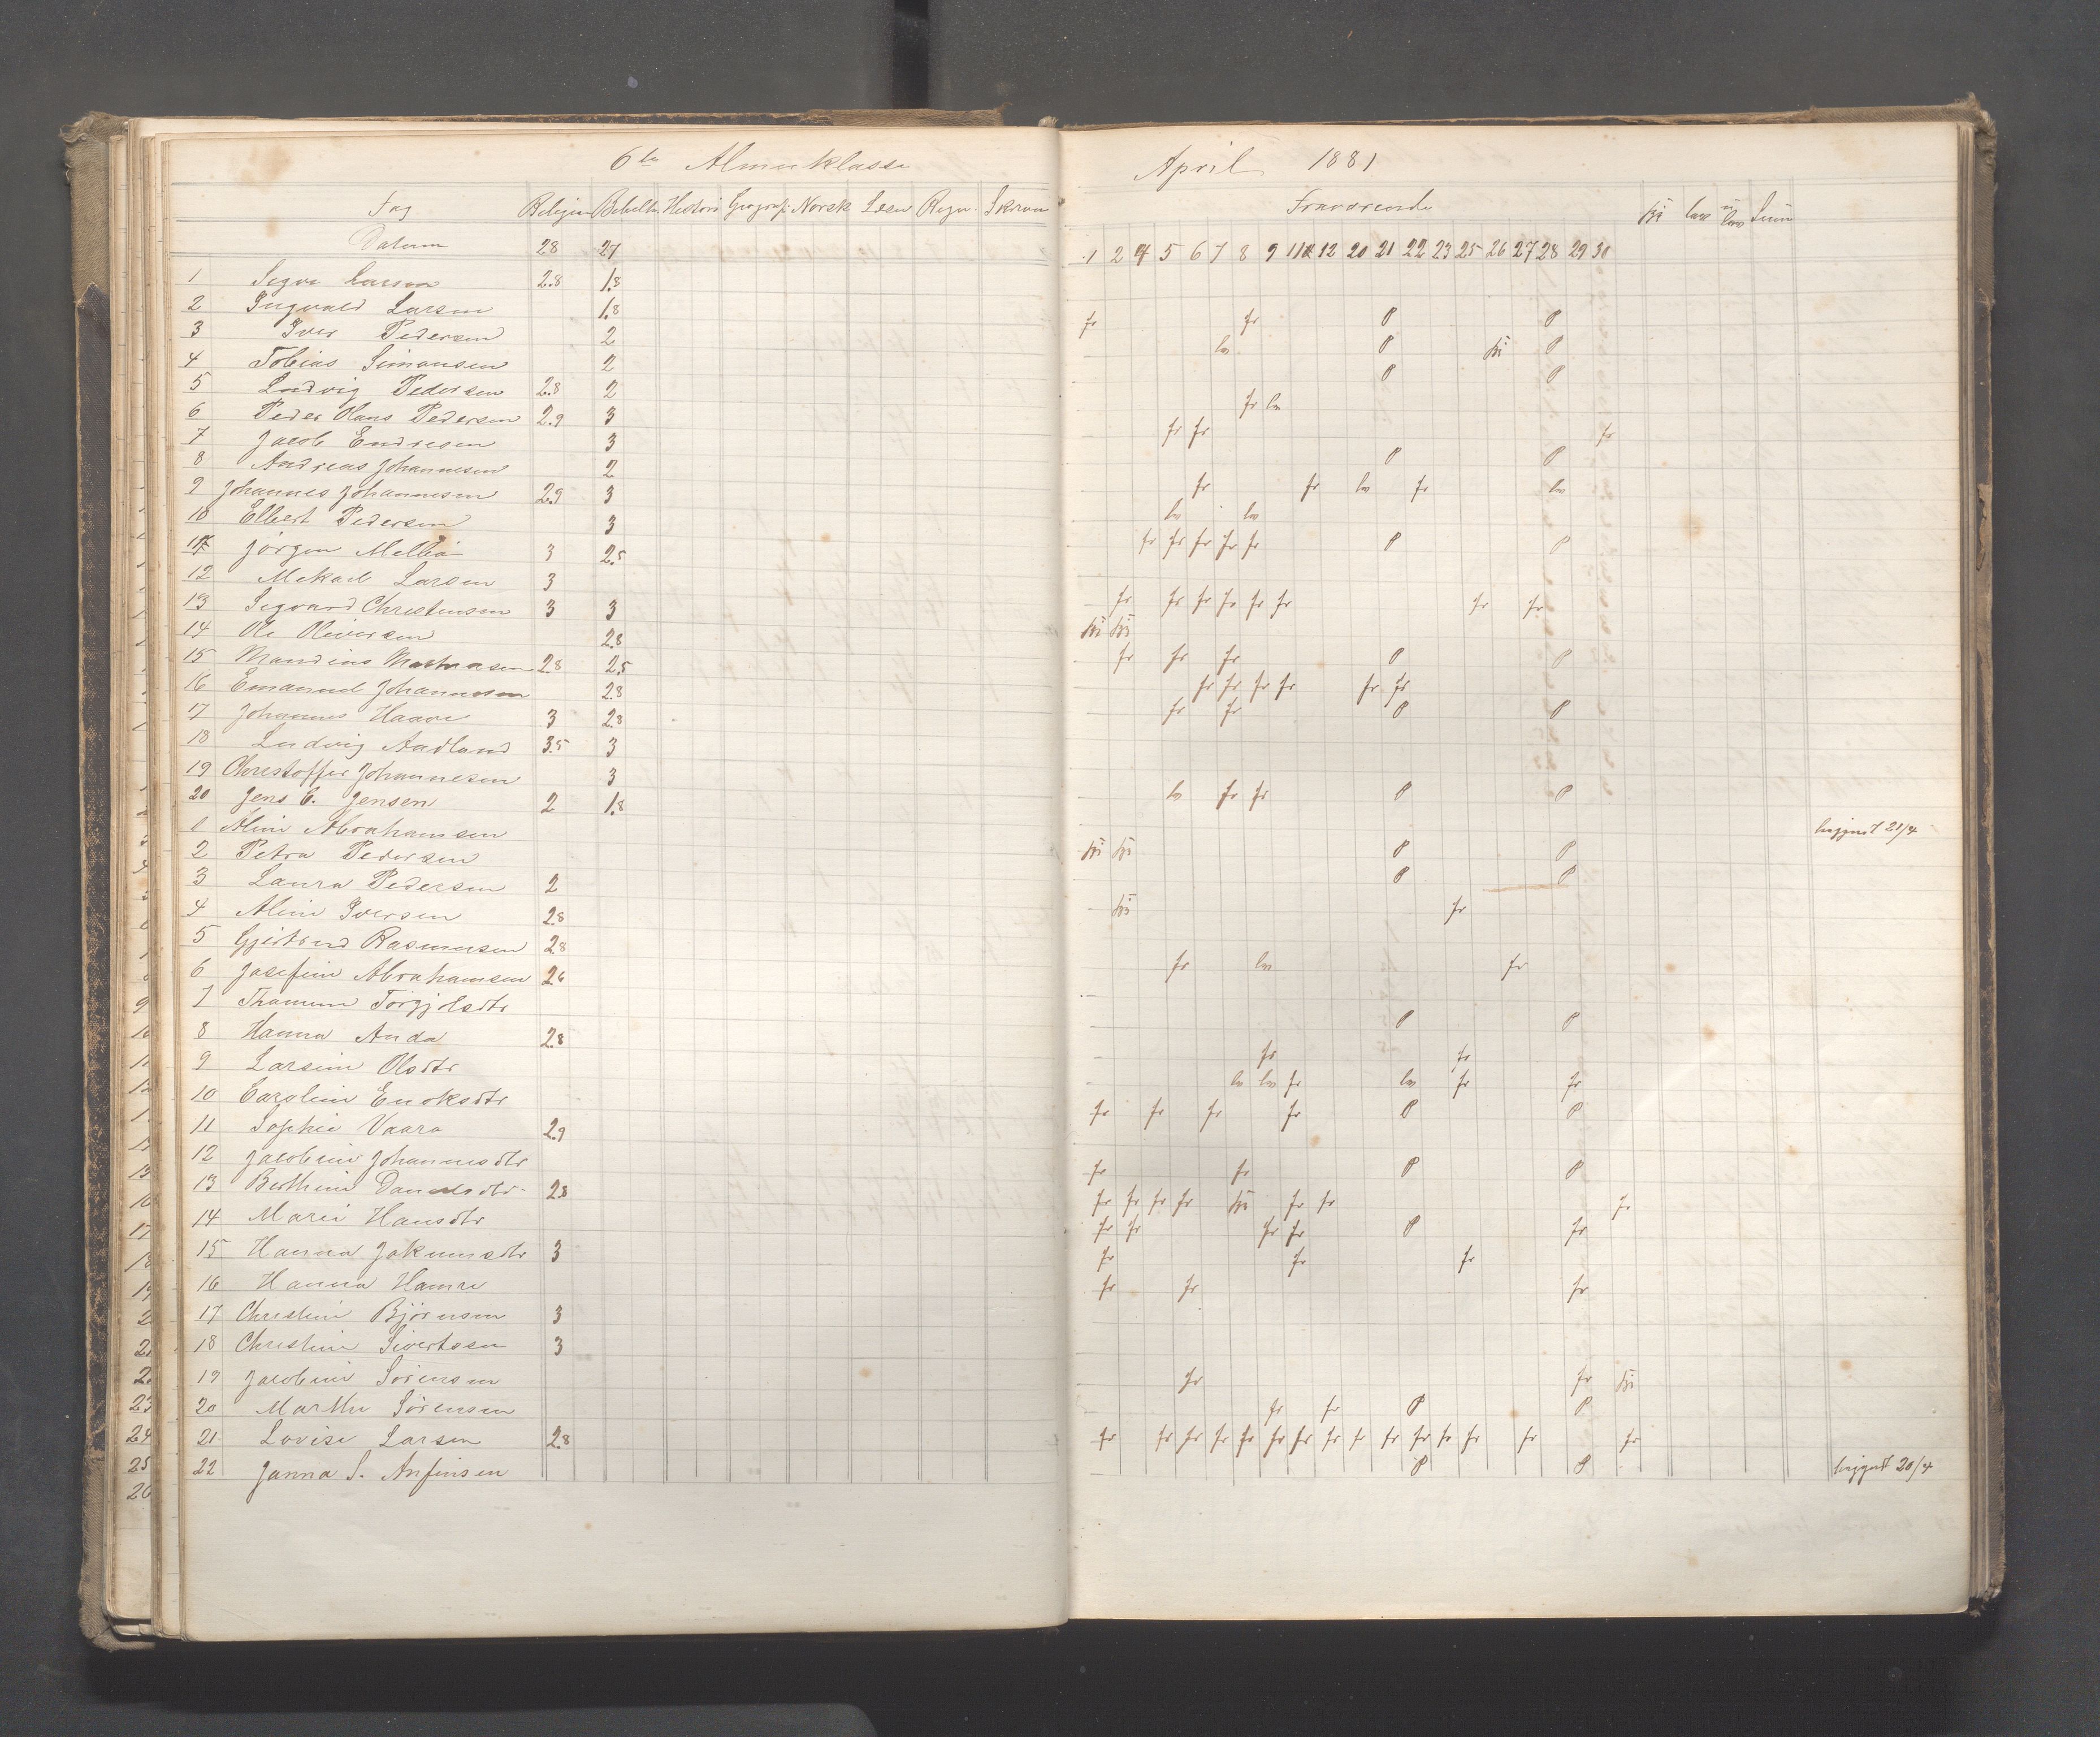 6te Almueklasse
Fag Religion Bibelh. Histori Geografi Norsk Læsn Regn. Skrivn
Datum 28 27
1 Sigva Larsen 2.8 1.8
2 Ingvald Larsen 1.8
3 Iver Pedersen 2
4 Tobias Simonsen 2
5 Ludvig Pedersen 2.8 2
6 Peder Hans Pedersen 2.9 3
7 Jacob Endresen 3
8 Andreas Johannesen 2
9 Johannes Johannesen 2.9 3
10 Elbert Pedersen 3
11 Jörgen 3 2.5
12 Mekael Larsen 3
13 Sigvard Christensen 3 3
14 Ole Oliversen 2.8
15 Mandius 2.8 2.5
16 Emanuel Johannesen 2.8
17 Johannes Haave 3 2.8
18 Ludvig Aadland 3.5 3
19 Christoffer Johannesen 3
20 Jens C. Jensen 2 1.8
1 Aline Abrahamsen
2 Petra Pedersen
3 Laura Pedersen 2
4 Aline Iversen 2.8
5 Gjertrud Rasmusen 2.8
6 Josefine Abrahamsen 2.6
7 Torgjelsdtr
8 Hanna Anda 2.8
9 Larsine Olsdtr
10 Caroline Enoksdtr
11 Sophie Vaara 2.9
12 Jacobine Johannesdtr
13 Berthine Danielsdtr 2.8
14 Marie Hansdtr
15 Hanna Jokumsdtr 3
16 Hanna Hamre
17 Christine Björnsen 3
18 Christine Sivertsen 3
19 Jacobine Sörensen
20 Marthe Sörensen
21 Lovise Larsen 2.8
22 Janna S. Anfinsen
April 1881
Fraværende
1 2 4 5 6 7 8 9 11 12 20 21 22 23 25 26 27 28 29 30
fr fr P P
lov P P
P P
fr lov
fr fr fr
P P
fr fr lov fr lov
lov lov
fr fr fr fr fr P P
fr fr fr fr fr fr fr fr
fr fr fr P P
fr fr fr fr fr fr
fr fr P P
lov fr fr P P
21/4
P P
P P
fr
fr lov fr
P P
fr fr
lov lov fr lov fr fr
fr fr fr fr P P
fr fr P P
fr fr fr fr fr fr fr
fr fr fr fr P fr
fr fr fr
fr fr fr
fr fr
fr fr P P
fr fr fr fr fr fr fr fr fr fr fr fr fr fr fr
P P 20/4